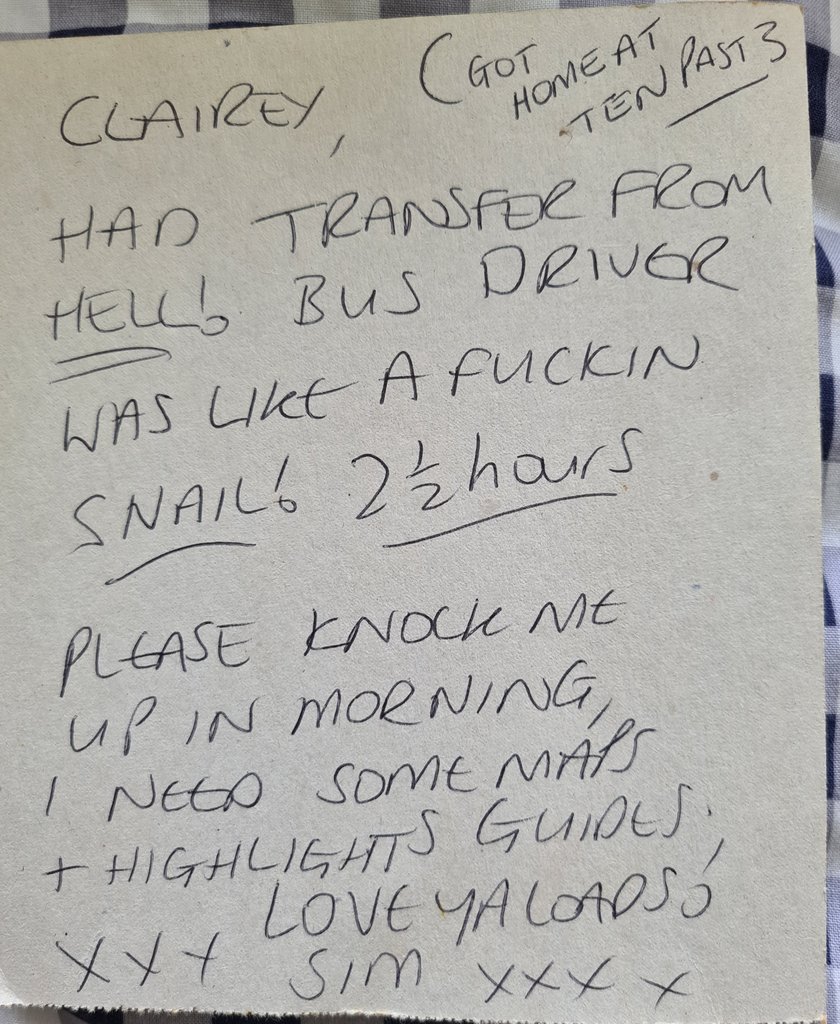 CLAIREY,
(GOT
HOME AT
TEN PAST 3
HAD TRANSFER FROM
HELL! BUS DRIVER
WAS LIKE A FUCKIN
SNAIL! 2½ hours
PLEASE KNOCK ME
UP IN MORNING,
I NEED SOME MAPS
+ HIGHLIGHTS GUIDES.
LOVE YA LOADS!
XXX SIM XXXX